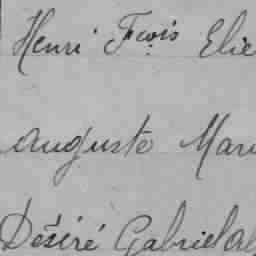 Henri Fcois Elie
Auguste Mari
Désiré Gabriel